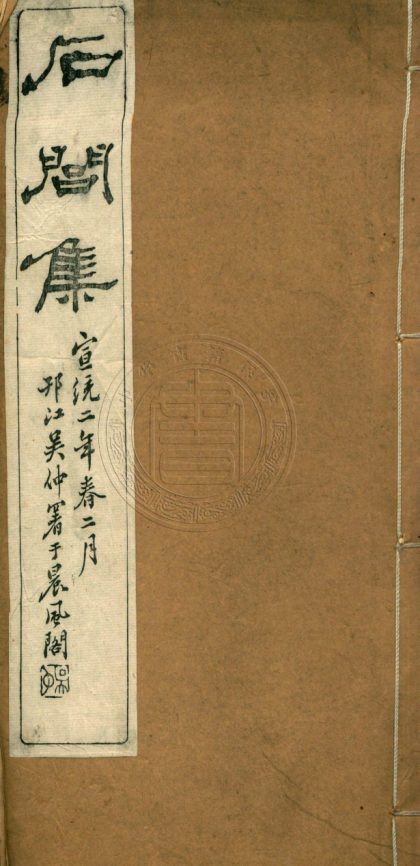 石閭集
宣統二年春二月
邗江吴仲署于晨風閣